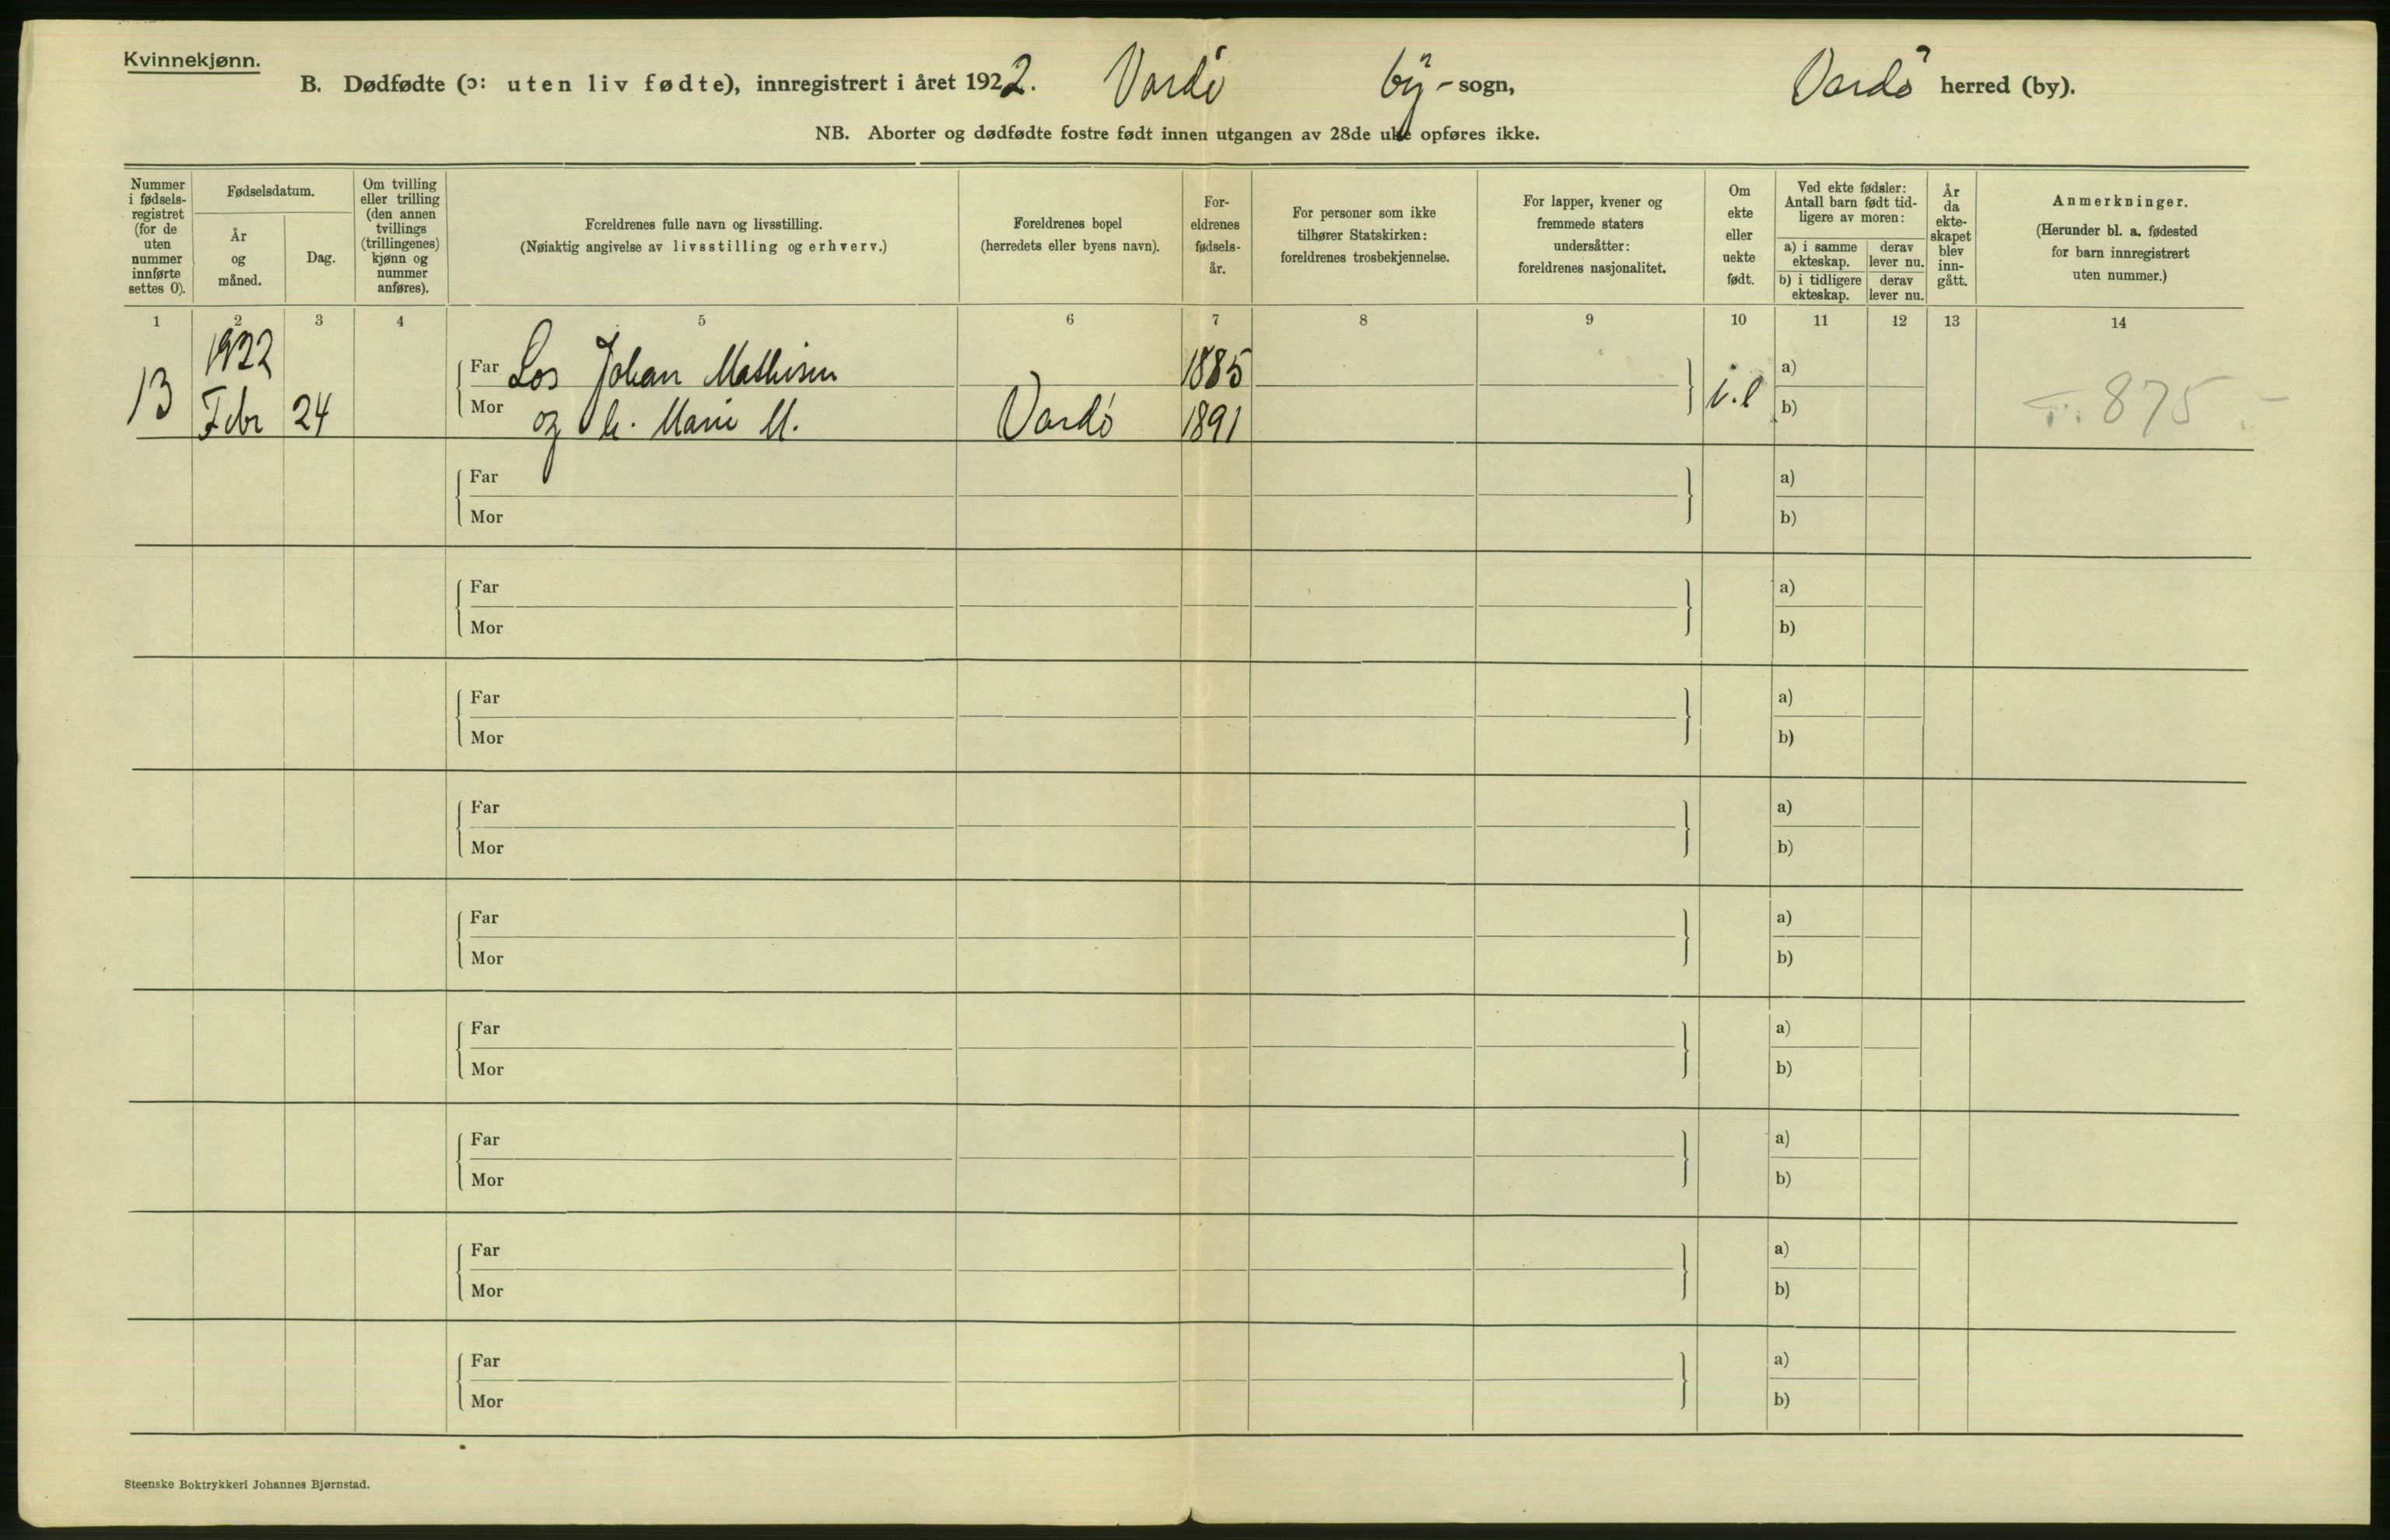 Kvinnekjønn.
B. Dødfødte (ɔ: uten liv fødte), innregistrert i året 1922. Vardö by-sogn, Vardö herred (by).
NB. Aborter og dødfødte fostre født innen utgangen av 28de uke opføres ikke.
Nummer i fødsels-registret (for de uten nummer innførte settes 0).
Fødselsdatum.
År og måned.
Dag.
Om tvilling eller trilling (den annen tvillings (trillingenes) kjønn og nummer anføres).
Foreldrenes fulle navn og livsstilling.
(Nøiaktig angivelse av livsstilling og erhverv.)
Foreldrenes bopel
(herredets eller byens navn).
For-eldrenes fødsels-år.
For personer som ikke tilhører Statskirken: foreldrenes trosbekjennelse.
For lapper, kvener og fremmede staters undersåtter: foreldrenes nasjonalitet.
Om ekte eller uekte født.
Ved ekte fødsler: Antall barn født tid-ligere av moren:
a) i samme ekteskap.
derav lever nu.
b) i tidligere ekteskap.
derav lever nu.
År da ekte-skapet blev inn-gått.
Anmerkninger.
(Herunder bl. a. fødested for barn innregistrert uten nummer.)
1 2 3 4 5 6 7 8 9 10 11 12 13 14
1922
Far Los Johan Mathisen 1885 a)
13 Febr 24 Mor og h. Marie M. Vardö 1891 b)
875
Far a)
Mor b)
Far a)
Mor b)
Far a)
Mor b)
Far a)
Mor b)
Far a)
Mor b)
Far a)
Mor b)
Far a)
Mor b)
Far a)
Mor b)
Far a)
Mor b)
Steenske Boktrykkeri Johannes Bjørnstad.